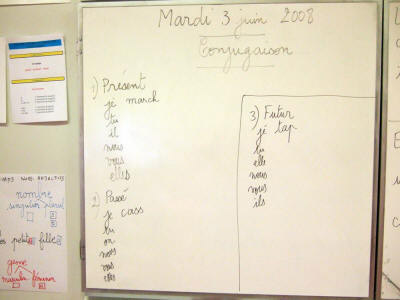 Mardi 3 juin 2008
Conjugaison
1) Présent
je march
tu
il
nous
vous
elles
2) Passé
je cass
tu
on
nous
vous
elles
3) Futur
je tap
tu
elle
nous
vous
ils
nombre
singulier pluriel
petite fille
genre
masculin féminin